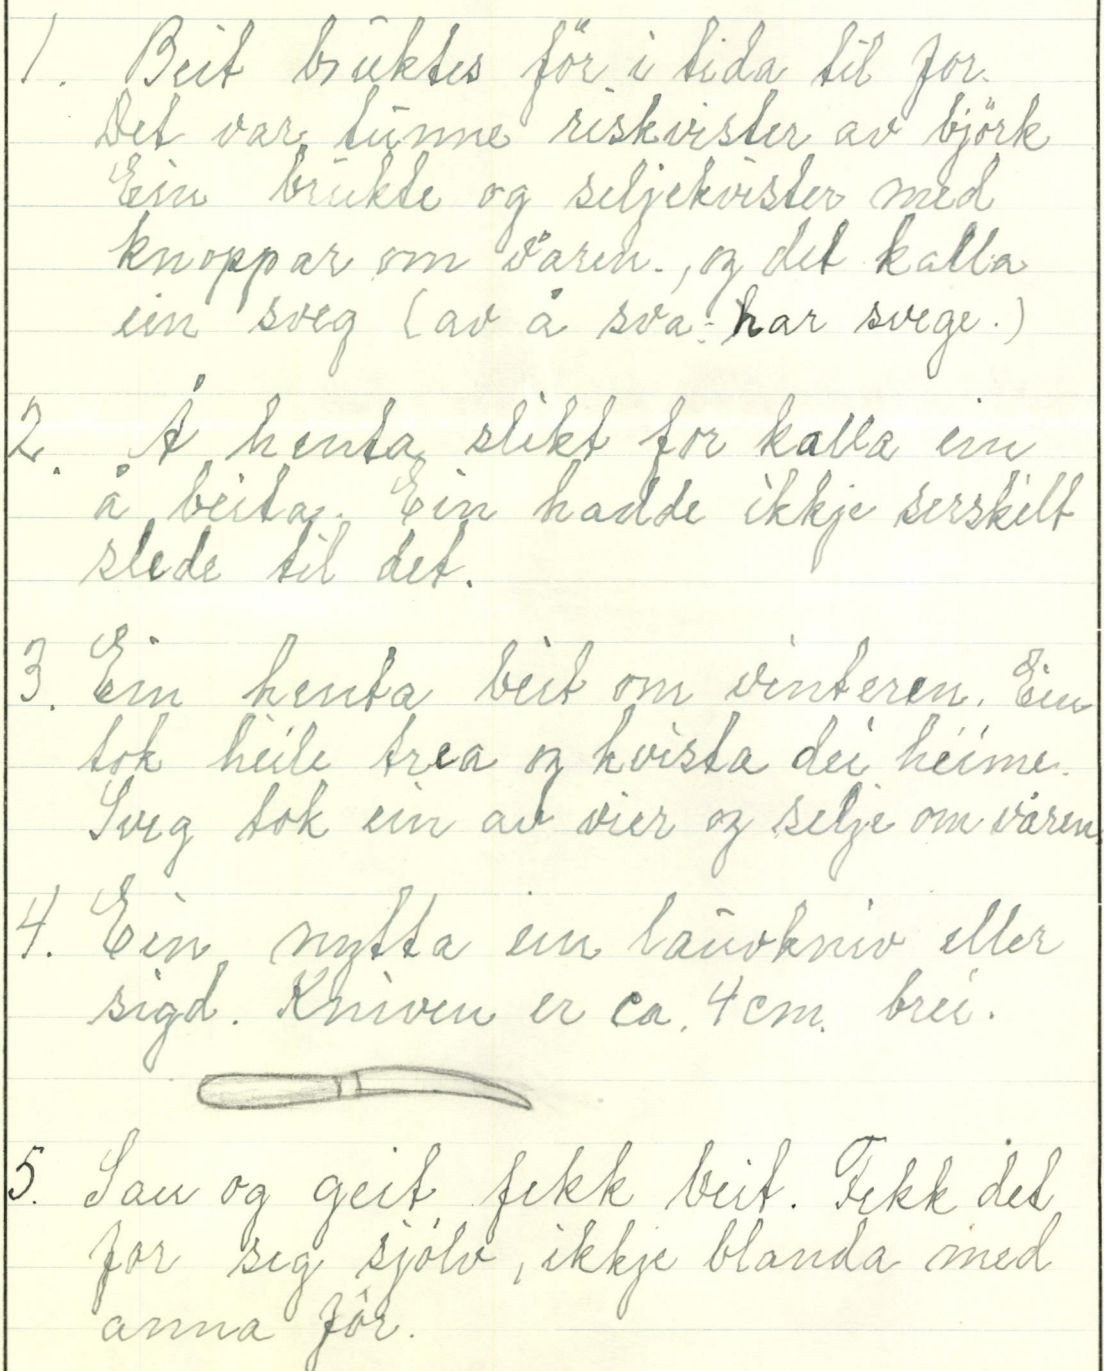 1. Beit brūktes för i tida til for.
Det var tūnne riskvister av björk
Ein brūkte og seljekvister med
knoppar om våren., og det kalla
ein sveg (av å sva: har svege.)
2. Å henta slikt for kalla ein
å beita. Ein hadde ikkje serskilt
slede til det.
3. Ein henta beit om vinteren. Ein
tok heile trea og kvista dei heime.
Sveg tok ein av vier og selje om våren.
4. Ein nytta ein laūvkniv eller
sigd. Kniven er ca. 4 cm. brei.
5. Sau og geit fekk beit. Fekk det
for seg sjølv, ikkje blanda med
anna fôr.